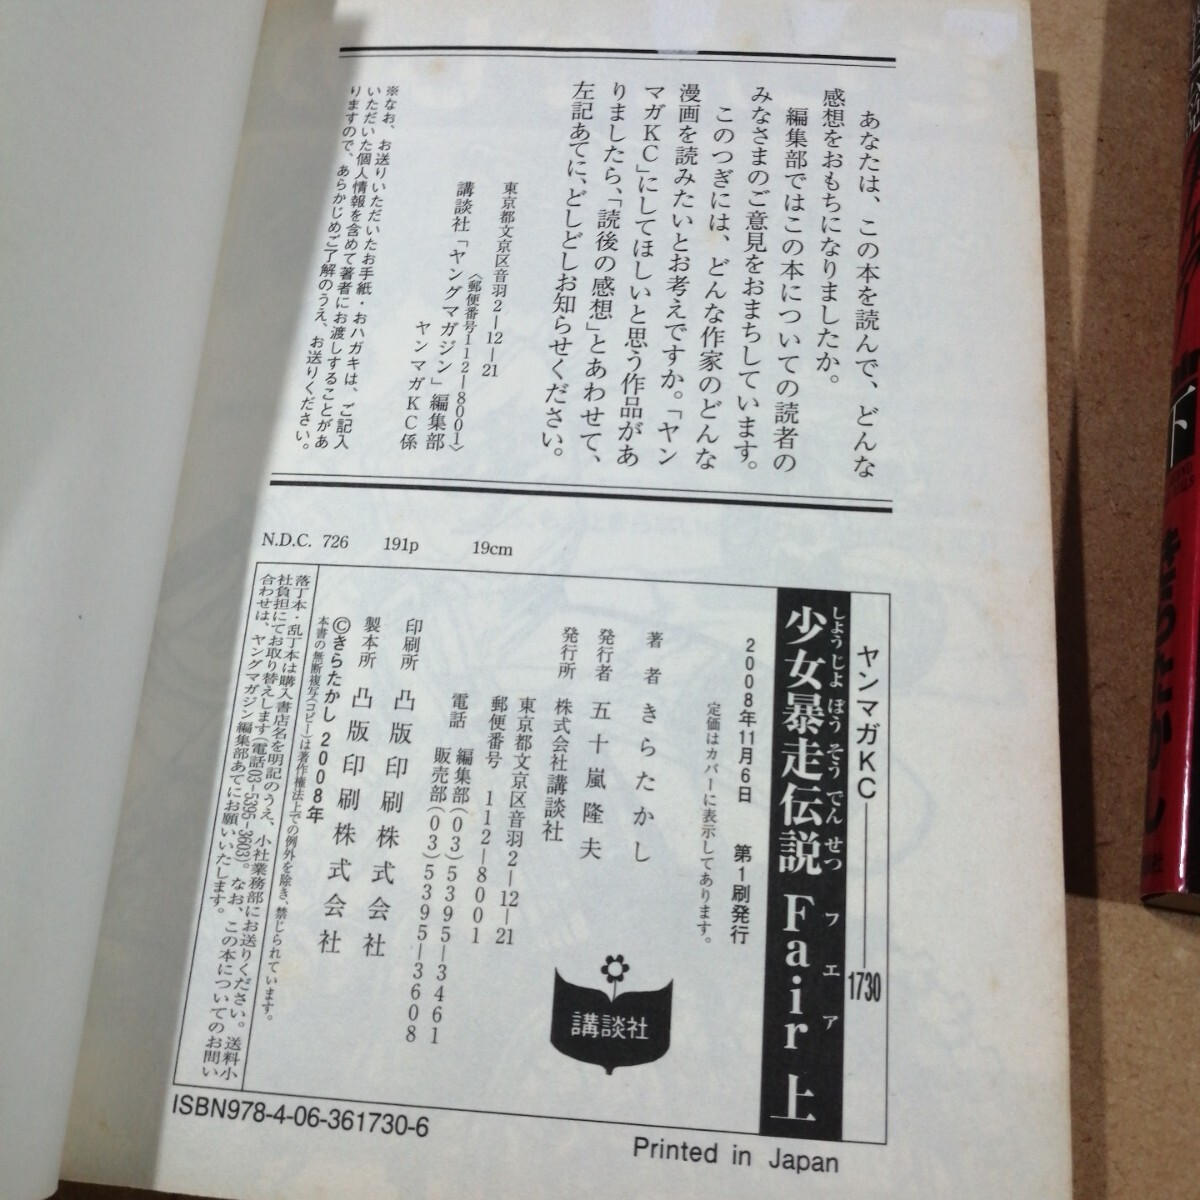 あなたは、この本を読んで、どんな
感想をおもちになりましたか。
編集部ではこの本についての読者の
みなさまのご意見をおまちしています。
このつぎには、どんな作家のどんな
漫画を読みたいとお考えですか。「ヤン
マガKC」にしてほしいと思う作品があ
りましたら、「読後の感想」とあわせて、
左記あてに、どしどしお知らせください。
東京都文京区音羽2―12―21
〈郵便番号112―8001〉
講談社「ヤングマガジン」編集部
ヤンマガKC係
※なお、お送りいただいたお手紙・おハガキは、ご記入
いただいた個人情報を含めて著者にお渡しすることがあ
りますので、あらかじめご了解のうえ、お送りください。
N.D.C. 726 191p 19cm
ヤンマガKC―1730
しょうじょ ぼう そう でん せつ フェア
少女暴走伝説 Fair 上
2008年11月6日 第1刷発行
定価はカバーに表示してあります。
著者 きらたかし
発行者 五十嵐隆夫
発行所 株式会社講談社
東京都文京区音羽2―12―21
郵便番号 112―8001
電話 編集部(03)5395―3461
販売部(03)5395―3608
印刷所 凸版印刷株式会社
製本所 凸版印刷株式会社
©きらたかし 2008年
本書の無断複写(コピー)は著作権法上での例外を除き、禁じられています。
落丁本・乱丁本は購入書店名を明記のうえ、小社業務部にお送りください。送料小
社負担にてお取り替えします(電話03-5395-3603)。なお、この本についてのお問い
合わせは、ヤングマガジン編集部あてにお願いいたします。
講談社
ISBN978-4-06-361730-6
Printed in Japan
下
きらたかし